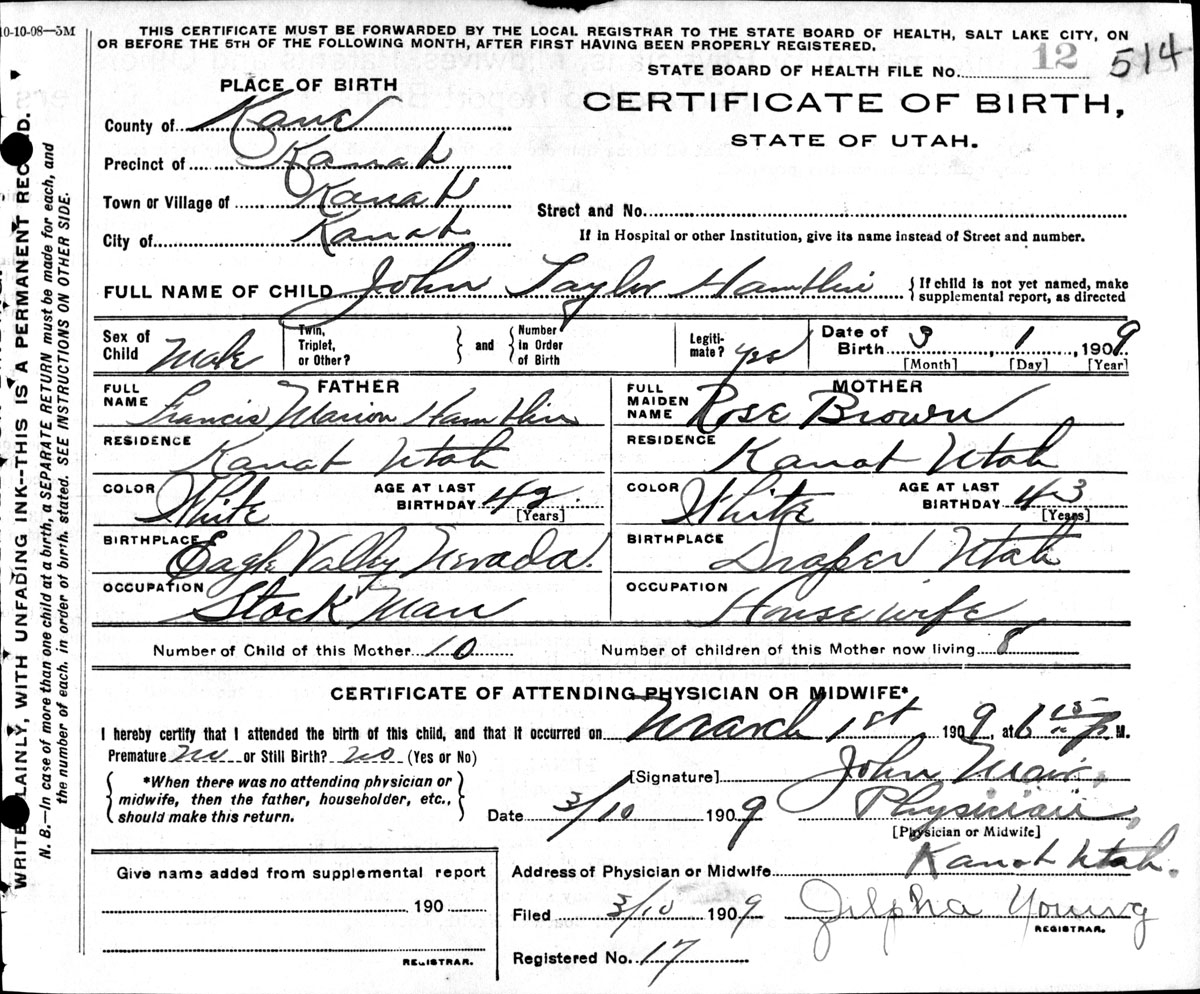 10-10-08—5M
THIS CERTIFICATE MUST BE FORWARDED BY THE LOCAL REGISTRAR TO THE STATE BOARD OF HEALTH, SALT LAKE CITY, ON
OR BEFORE THE 5TH OF THE FOLLOWING MONTH, AFTER FIRST HAVING BEEN PROPERLY REGISTERED.
STATE BOARD OF HEALTH FILE NO. 12 514
PLACE OF BIRTH
CERTIFICATE OF BIRTH,
STATE OF UTAH.
County of Kane
Precinct of Kanab
Town or Village of Kanab
Street and No.
City of Kanab
If in Hospital or other Institution, give its name instead of Street and number.
FULL NAME OF CHILD John Taylor Hamblin { If child is not yet named, make
supplemental report, as directed
Sex of Child Male
Twin, Triplet, or Other? } and { Number in Order of Birth
Legiti-mate? yes
Date of Birth 3, 1, 1909
[Month] [Day] [Year]
FATHER
FULL NAME Francis Marion Hamblin
RESIDENCE Kanab Utah
COLOR White AGE AT LAST BIRTHDAY 42 [Years]
BIRTHPLACE Eagle Valley Nevada.
OCCUPATION Stock Man
MOTHER
FULL MAIDEN NAME Rose Brown
RESIDENCE Kanab Utah
COLOR White AGE AT LAST BIRTHDAY 43 [Years]
BIRTHPLACE Draper Utah
OCCUPATION House wife
Number of Child of this Mother 10 Number of children of this Mother now living 8
CERTIFICATE OF ATTENDING PHYSICIAN OR MIDWIFE*
I hereby certify that I attended the birth of this child, and that it occurred on March 1st 1909, at 6 15 P M.
Premature No or Still Birth? No (Yes or No)
{ *When there was no attending physician or
midwife, then the father, householder, etc.,
should make this return. }
[Signature] John
Date 3/10 1909 Physician,
[Physician or Midwife]
Address of Physician or Midwife Kanab Utah.
Filed 3/10 1909 Zilpha Young
REGISTRAR.
Registered No. 17
Give name added from supplemental report
190
REGISTRAR.
WRITE PLAINLY, WITH UNFADING INK--THIS IS A PERMANENT RECORD.
N. B.—In case of more than one child at a birth, a SEPARATE RETURN must be made for each, and
the number of each, in order of birth, stated. SEE INSTRUCTIONS ON OTHER SIDE.